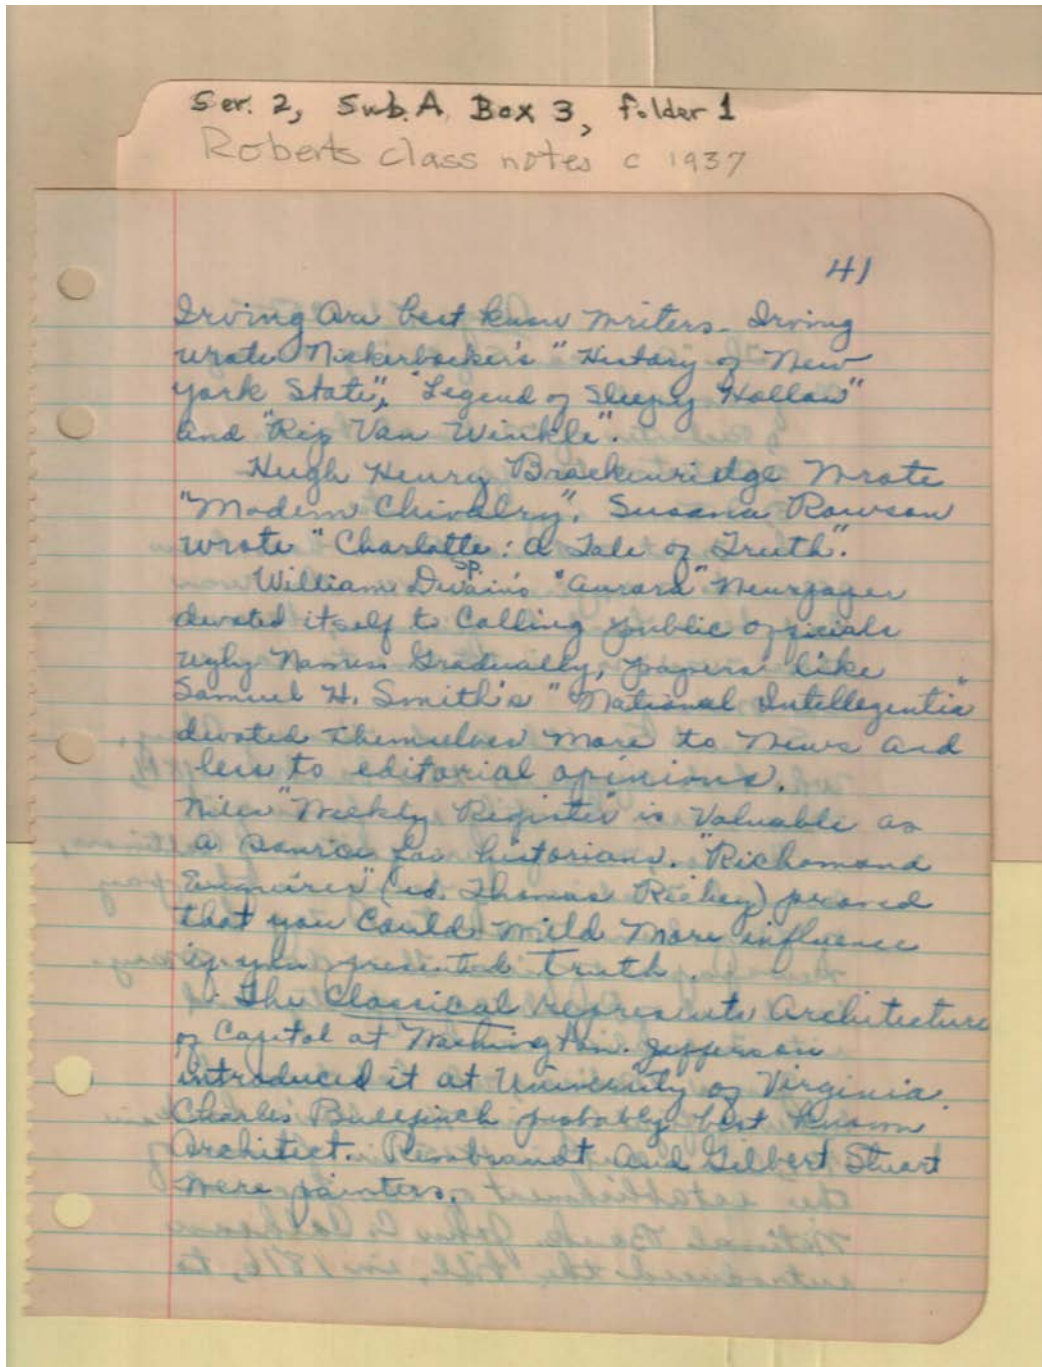 Ser. 2, Sub. A Box 3, folder 1
Roberts class notes c 1937
41
Irving are best know writers. Irving
wrote Nickerbocker's "History of New
York State", "Legend of Sleepy Hollow"
and "Rip Van Winkle".
Hugh Henry Brackenridge wrote
"Modern Chivalry". Susana Rowson
wrote "Charlotte: a Tale of Truth".
sp.
William Dwain's "Aurora" Newspaper
devoted itself to calling public officials
ugly names. Gradually, papers like
Samuel H. Smith's "National Intellegentia"
devoted themselves more to news and
less to editorial opinions.
Niles "Weekly Register" is valuable as
a source for historians. "Richamond
Enquirer" (ed. Thomas Richey) proved
that you could wield more influence
if you presented truth.
The Classical represents Architecture
of Capitol at Washington. Jefferson
introduced it at University of Virginia.
Charles Bullfinch probably best known
Architect. Rembrandt and Gilbert Stuart
were painters.